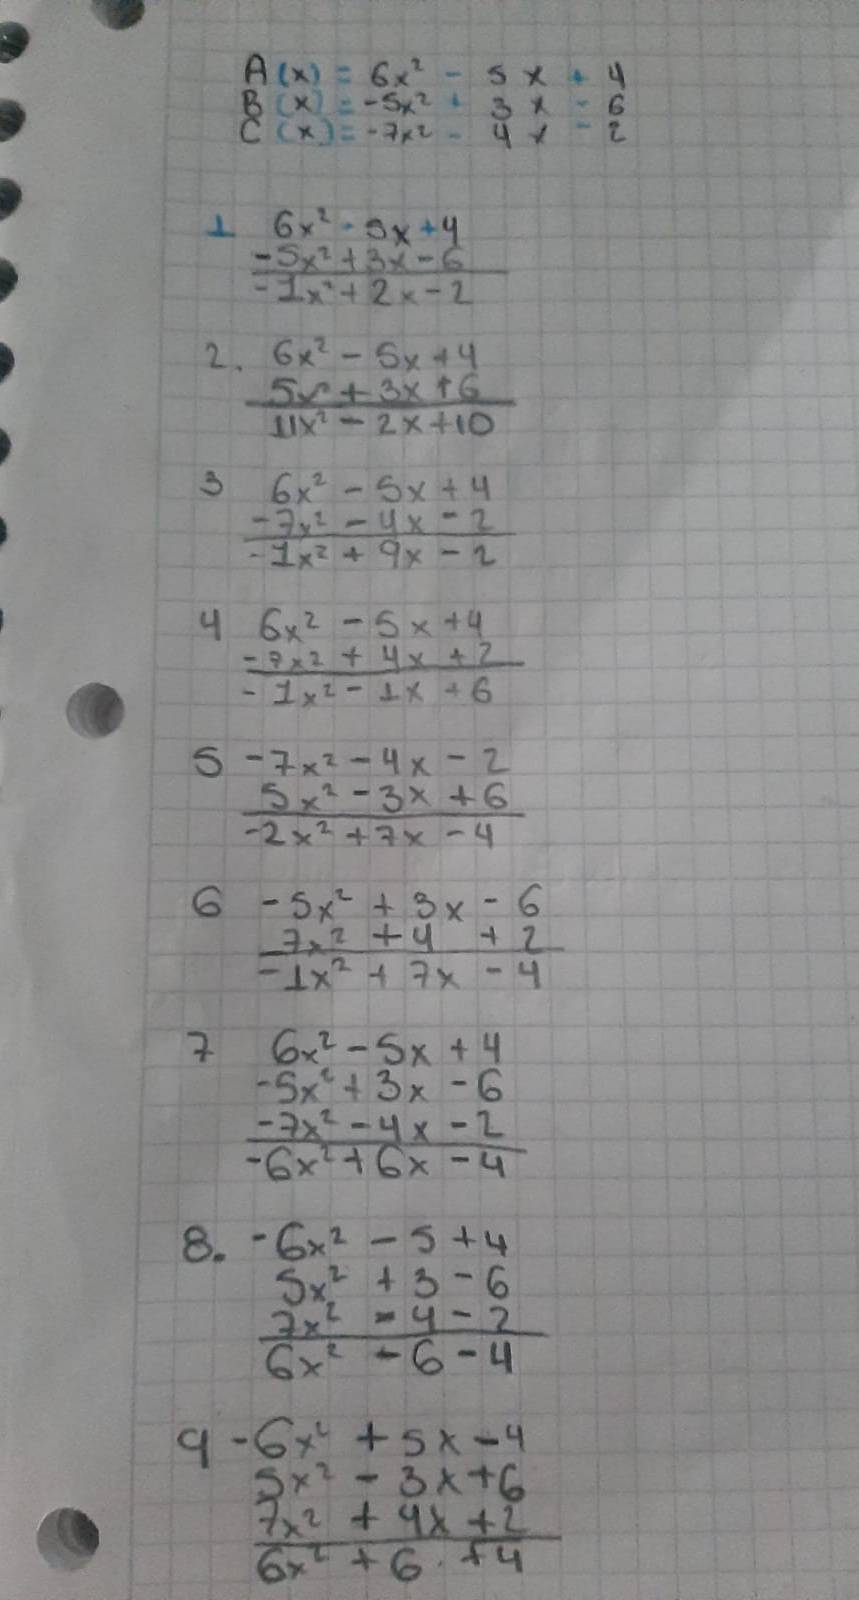 A(x) = 6x² - 5x + 4
B(x) = -5x² + 3x - 6
C(x) = -7x² - 4x - 2
1 6x² - 5x + 4
-5x² + 3x - 6
-1x² + 2x - 2
2. 6x² - 5x + 4
5x² + 3x + 6
11x² - 2x + 10
3 6x² - 5x + 4
-7x² - 4x - 2
-1x² + 9x - 2
4 6x² - 5x + 4
-7x² + 4x + 2
-1x² - 1x + 6
5 -7x² - 4x - 2
5x² - 3x + 6
-2x² + 7x - 4
6 -5x² + 3x - 6
7x² + 4 + 2
-1x² + 7x - 4
7 6x² - 5x + 4
-5x² + 3x - 6
-7x² - 4x - 2
-6x² + 6x - 4
8. -6x² - 5 + 4
5x² + 3 - 6
7x² - 4 - 2
6x² - 6 - 4
9 -6x² + 5x - 4
5x² - 3x + 6
7x² + 4x + 2
6x² + 6. + 4